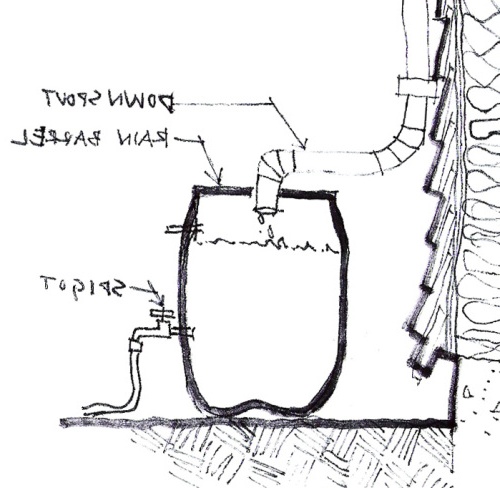 DOWNSPOUT
RAIN BARREL
SPIGOT